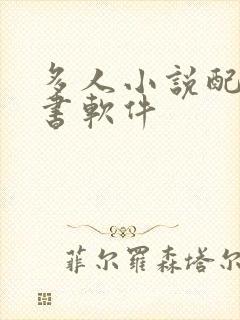 多人小說配
書軟件
菲尔羅森塔尔